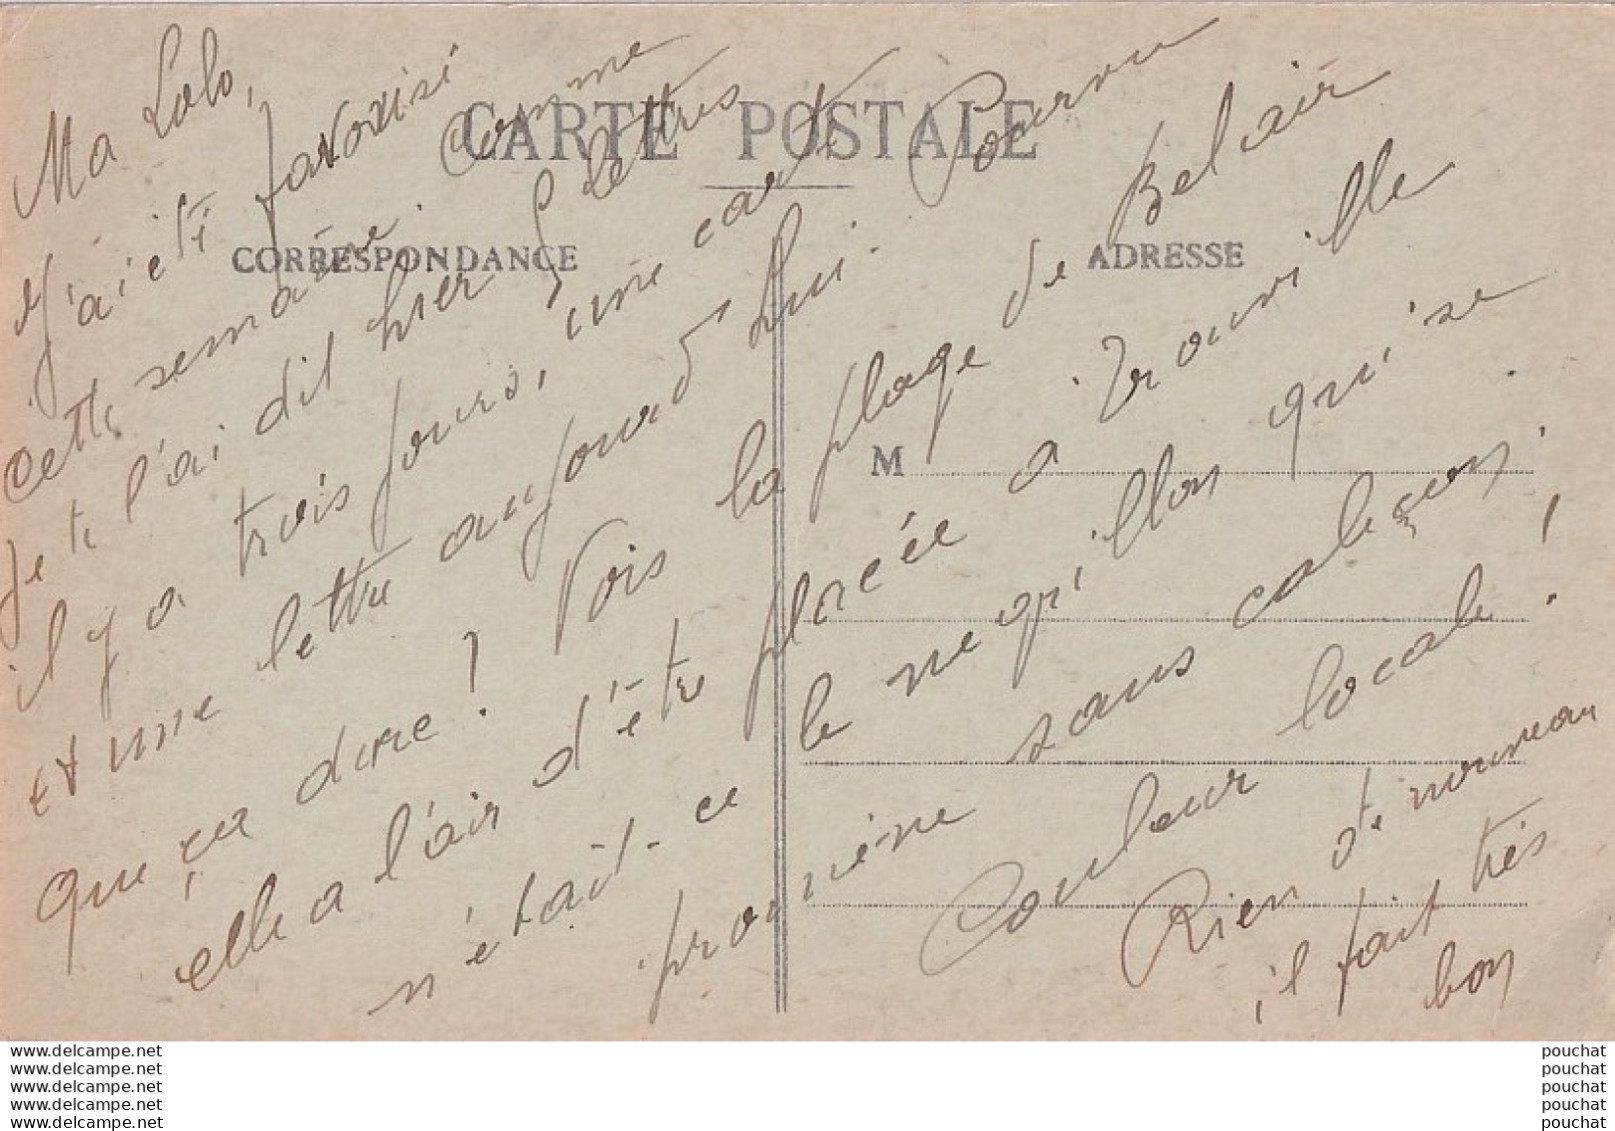 CARTE POSTALE
CORRESPONDANCE
ADRESSE
M
Ma Lolo,
J'ai été favorisé
cette semaine. Comme
je te l'ai dit hier 5 lettres
il y a trois jours, une carte
et une lettre aujourd'hui. Pourvu
que ça dure! Vois la plage de Bel air
elle a l'air d'être placée à Trouville.
n'était-ce le négrillon qui se
promène sans caleçon.
Couleur locale!
Rien de nouveau
il fait très
bon
www.delcampe.net
www.delcampe.net
www.delcampe.net
www.delcampe.net
www.delcampe.net
pouchat
pouchat
pouchat
pouchat
pouchat